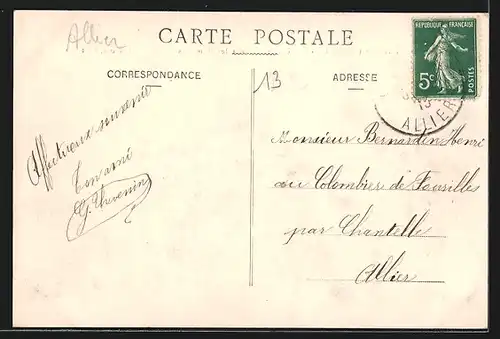 Allier
CARTE POSTALE
CORRESPONDANCE
13
ADRESSE
REPUBLIQUE FRANÇAISE
5c
POSTES
13
ALLIER
Affectueux souvenir
Ton ami
G. Thevenin
Monsieur Bernardin Henri
au Colombier de Fourilles
par Chantelle
Allier